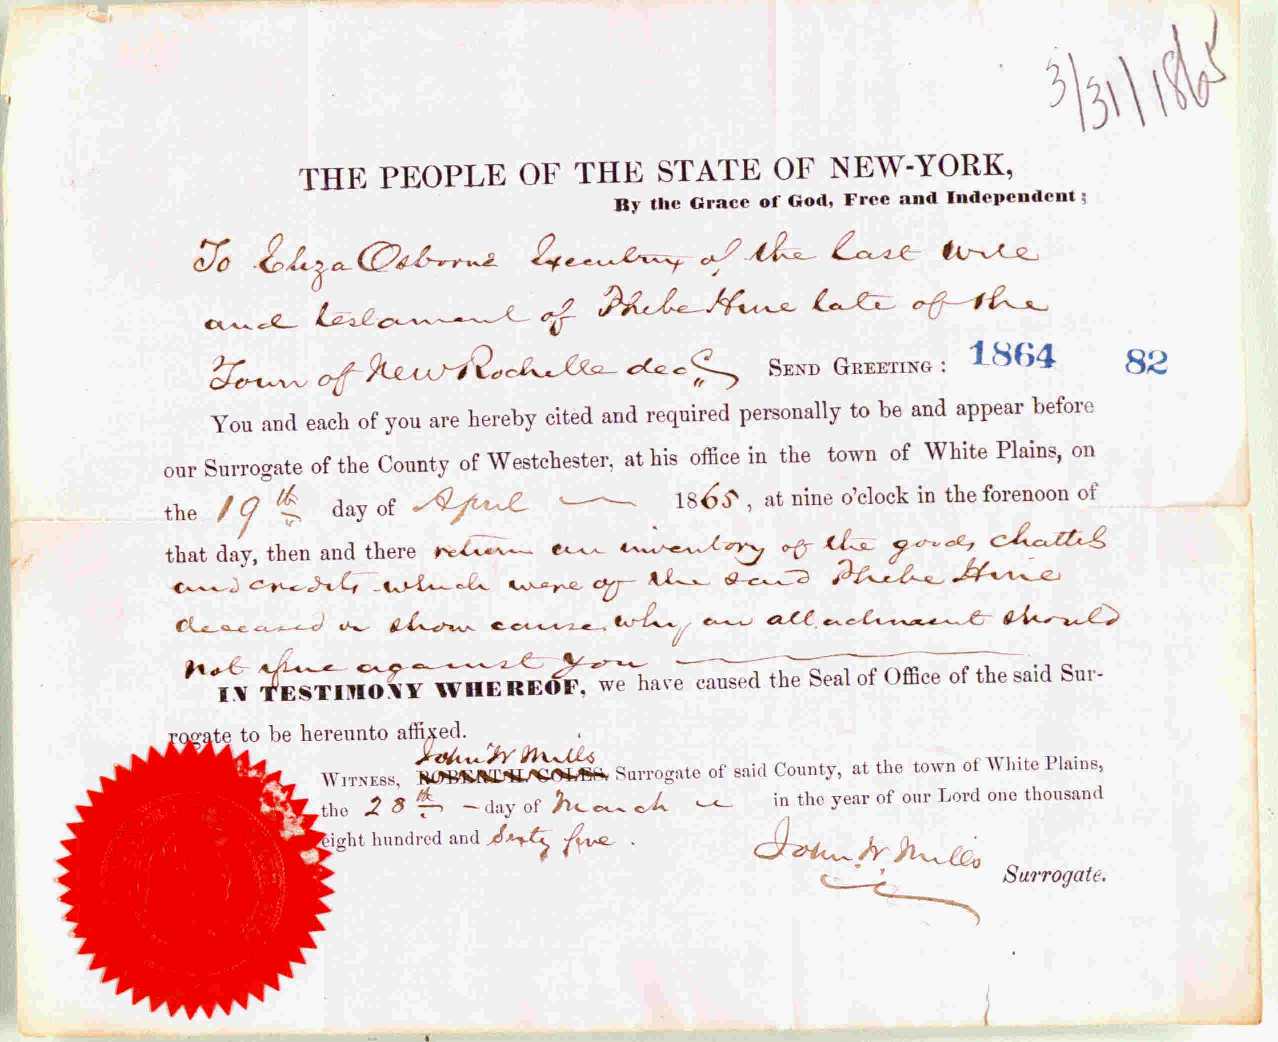 3/31/1865
THE PEOPLE OF THE STATE OF NEW-YORK,
By the Grace of God, Free and Independent;
To Eliza Osborne Executrix of the Last Will
and testament of Phebe Hine late of the
Town of New Rochelle decd SEND GREETING: 1864 82
You and each of you are hereby cited and required personally to be and appear before
our Surrogate of the County of Westchester, at his office in the town of White Plains, on
the 19th day of April 1865, at nine o'clock in the forenoon of
that day, then and there return an inventory of the goods, chattels
and credits which were of the said Phebe Hine
deceased or show cause why an attachment should
not issue against you
IN TESTIMONY WHEREOF, we have caused the Seal of Office of the said Sur-
rogate to be hereunto affixed.
John W Mills
WITNESS, ROBERT H. COLES, Surrogate of said County, at the town of White Plains,
the 28th day of March in the year of our Lord one thousand
eight hundred and Sixty five.
John W Mills
Surrogate.